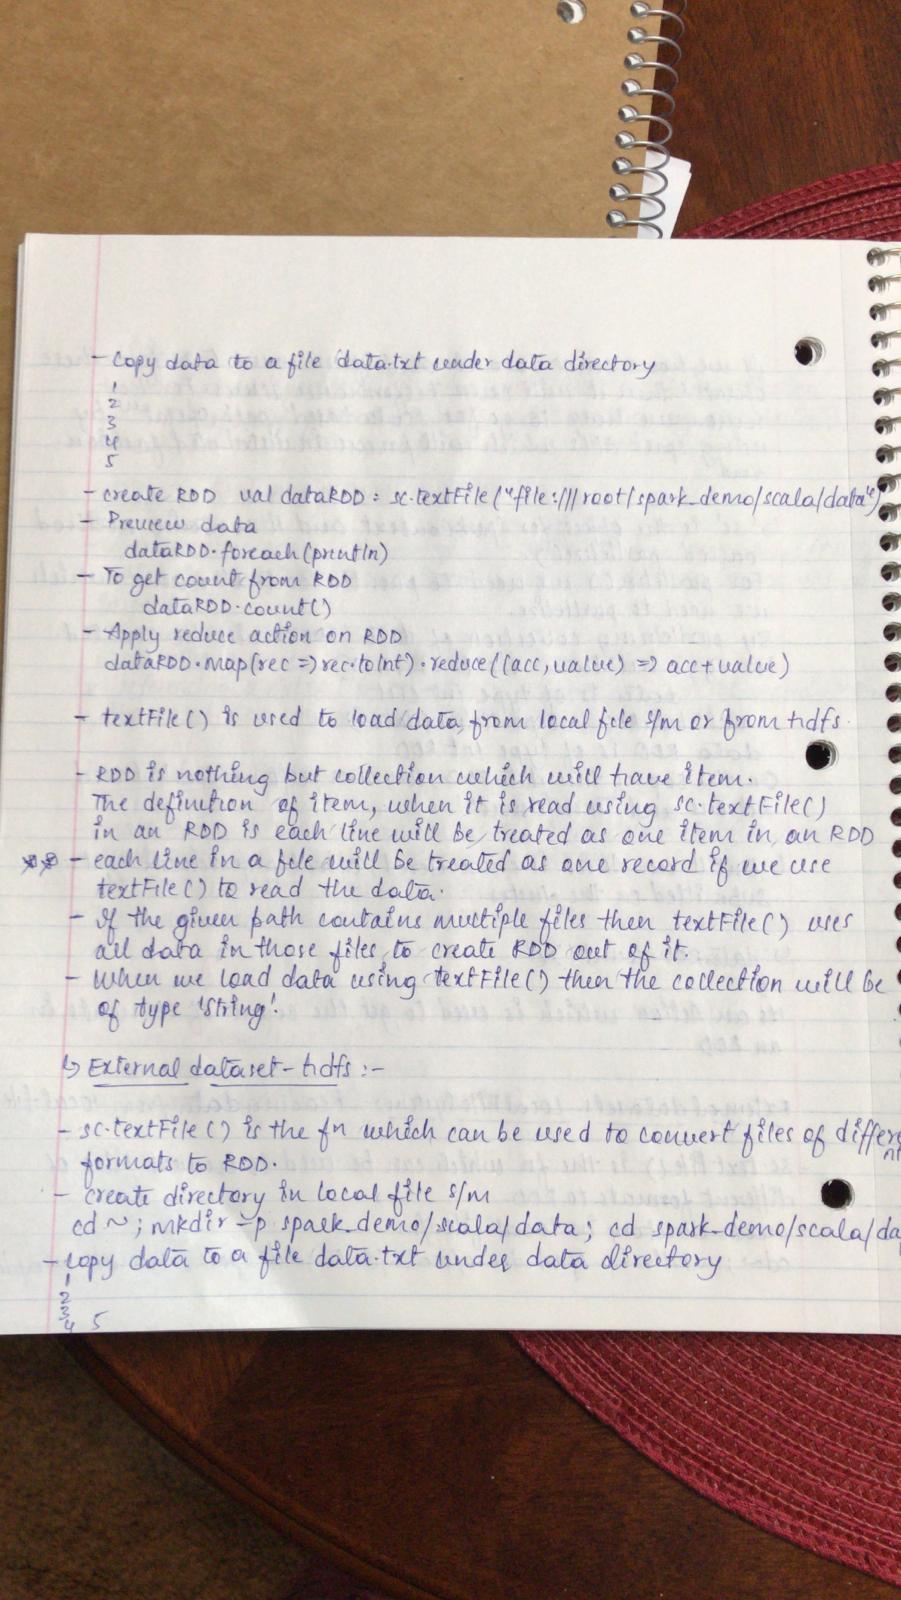 - Copy data to a file data.txt under data directory
1
2
3
4
5
- create RDD val dataRDD = sc.textFile("file:///root/spark_demo/scala/data")
- Preview data
dataRDD.foreach(println)
- To get count from RDD
dataRDD.count()
- Apply reduce action on RDD
dataRDD.map(rec => rec.toInt).reduce((acc, value) => acc + value)
- textFile() is used to load data from local file s/m or from hdfs.
- RDD is nothing but collection which will have item.
The definition of item, when it is read using sc.textFile()
in an RDD is each line will be treated as one item in an RDD
** - each line in a file will be treated as one record if we use
textFile() to read the data.
- If the given path contains multiple files then textFile() uses
all data in those files to create RDD out of it.
- When we load data using textFile() then the collection will be
of type 'String'.
↳ External dataset - hdfs :-
- sc.textFile() is the fn which can be used to convert files of different
formats to RDD.
- create directory in local file s/m
cd ~; mkdir -p spark_demo/scala/data; cd spark_demo/scala/da
- copy data to a file data.txt under data directory
1
2
3
4 5